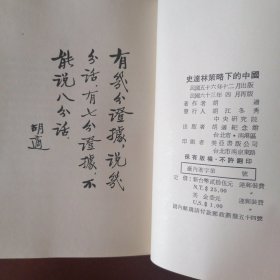 有幾分證據說幾
分話有七分證據不
能說八分話
胡適
史達林策略下的中國
民國五十六年十二月出版
民國六十三年 四 月再版
著作者 胡 適
發行人 胡 江 冬 秀
中 央 研 究 院
出版者 胡 適 紀 念 館
台北市・南港區
保有版權・不許翻印
N.T.$ 25.00
U.S.$ 1.00